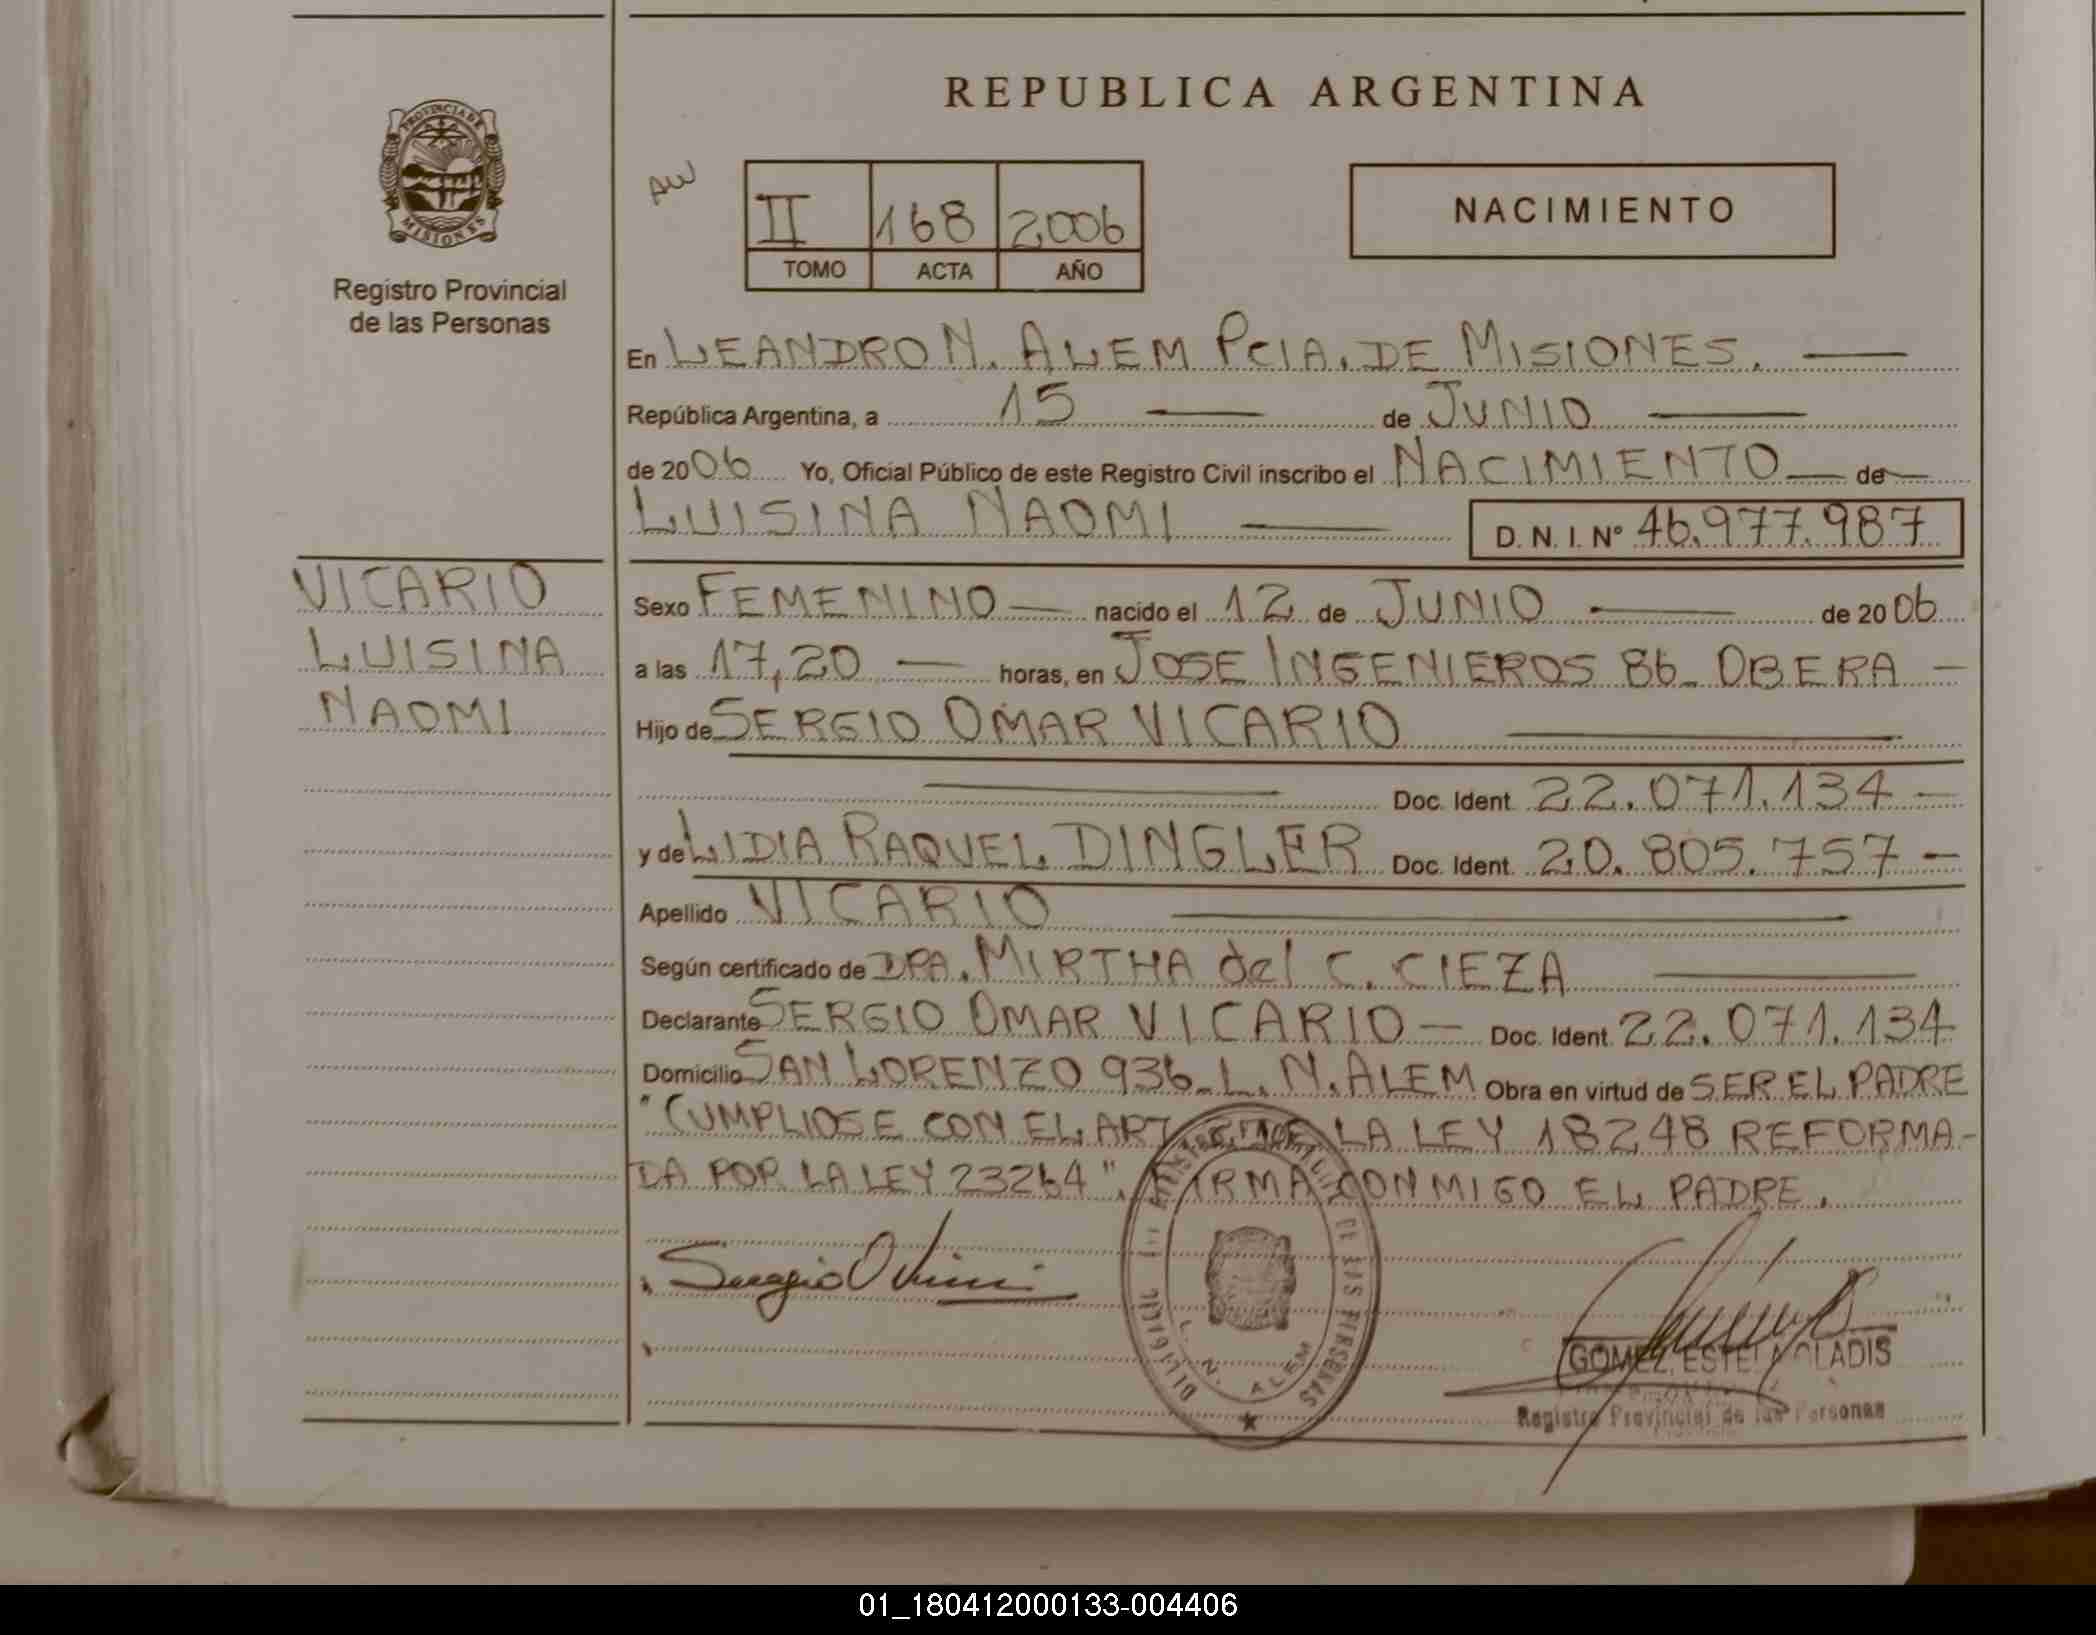 REPUBLICA ARGENTINA
PROVINCIA DE
MISIONES
Registro Provincial
de las Personas
AW
II 168 2006
TOMO ACTA AÑO
NACIMIENTO
En LEANDRO N. ALEM PCIA. DE MISIONES.
República Argentina, a 15 de JUNIO
de 2006 Yo, Oficial Público de este Registro Civil inscribo el NACIMIENTO de
LUISINA NAOMI D. N. I. Nº 46.977.987
VICARIO
LUISINA
NAOMI
Sexo FEMENINO nacido el 12 de JUNIO de 2006
a las 17,20 horas, en JOSE INGENIEROS 86_ OBERA
Hijo de SERGIO OMAR VICARIO
Doc. Ident. 22.071.134
y de LIDIA RAQUEL DINGLER Doc. Ident. 20.805.757
Apellido VICARIO
Según certificado de DRA. MIRTHA del C. CIEZA
Declarante SERGIO OMAR VICARIO Doc. Ident. 22.071.134
Domicilio SAN LORENZO 936_L.N.ALEM Obra en virtud de SER EL PADRE
"CUMPLIOSE CON EL ART LA LEY 18248 REFORMA-
DA POR LA LEY 23264". FIRMA CONMIGO EL PADRE.
DE LAS PERSONAS
L. N. ALEM
Sergio O
GOMEZ, ESTELA GLADIS
Registro Provincial de las Personas
01_180412000133-004406